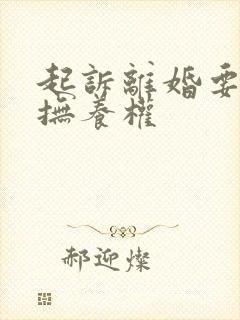 起訴離婚要
撫養權
郝迎燦